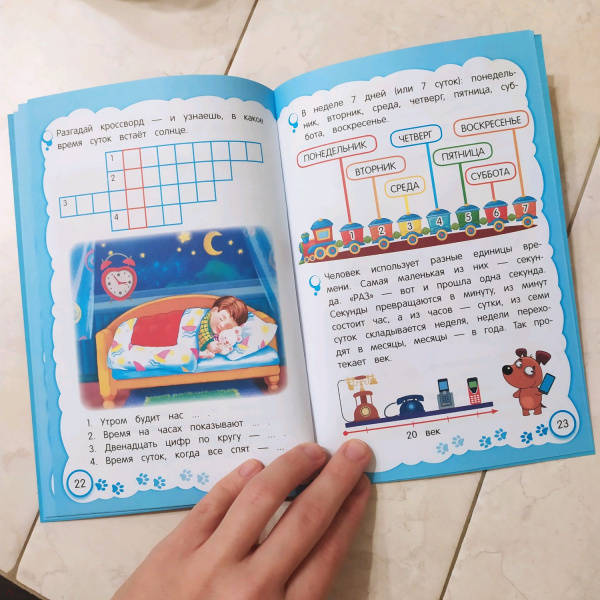 Разгадай кроссворд — и узнаешь, в какое
время суток встаёт солнце.
1
2
3
4
1. Утром будит нас ... .
2. Время на часах показывают ... .
3. Двенадцать цифр по кругу — ... .
4. Время суток, когда все спят — ... .
22
В неделе 7 дней (или 7 суток): понедель-
ник, вторник, среда, четверг, пятница, суб-
бота, воскресенье.
ПОНЕДЕЛЬНИК
ВТОРНИК
СРЕДА
ЧЕТВЕРГ
ПЯТНИЦА
СУББОТА
ВОСКРЕСЕНЬЕ
1 2 3 4 5 6 7
Человек использует разные единицы вре-
мени. Самая маленькая из них — секун-
да. «РАЗ» — вот и прошла одна секунда.
Секунды превращаются в минуту, из минут
состоит час, а из часов — сутки, из семи
суток складывается неделя, недели перехо-
дят в месяцы, месяцы — в года. Так про-
текает век.
20 век
23